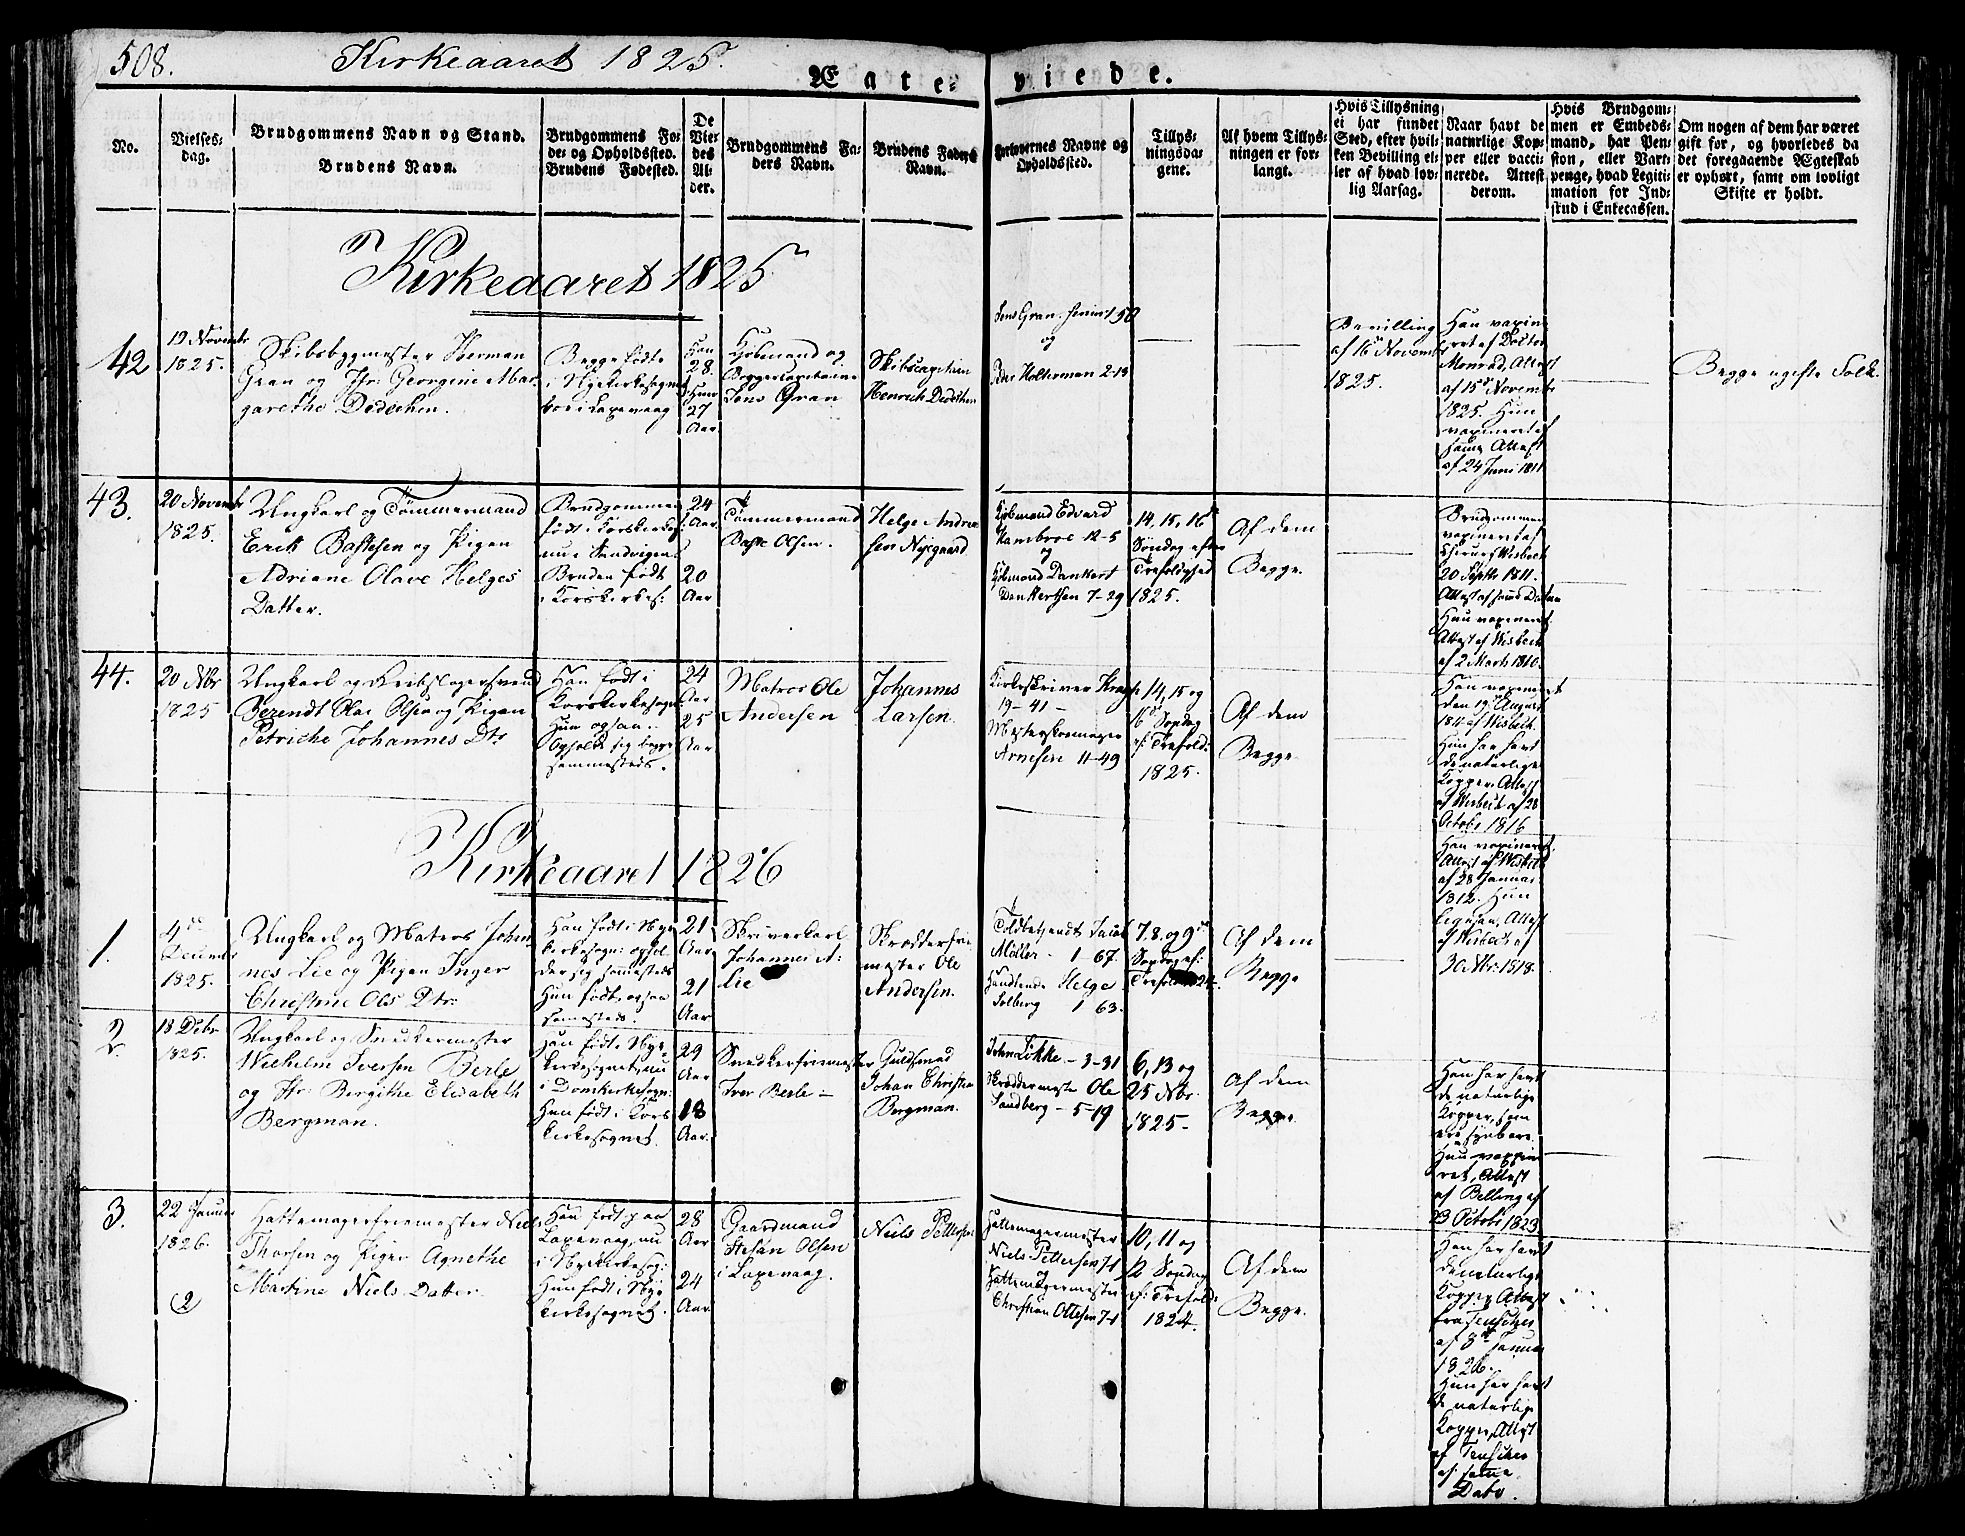 508.
Kirkeaaret 1825.
Ægte-viede.
No.
Vielses-
dag.
Brudgommens Navn og Stand.
Brudens Navn.
Brudgommens Fø-
de- og Opholdssted.
Brudens Fødested.
De
Vie-
des
Al-
der.
Brudgommens Fa-
ders Navn.
Brudens Faders
Navn.
Forlovernes Navne og
Opholdssted.
Tillys-
ningsda-
gene.
Af hvem Tillys-
ningen er for-
langt.
Hvis Tillysning
ei har fundet
Sted, efter hvil-
ken Bevilling el-
ler af hvad lov-
lig Aarsag.
Naar havt de
naturlige Kop-
per eller vacci-
nerede. Attest
derom.
Hvis Brudgom-
men er Embeds-
mand, har Pen-
sion, eller Vart-
penge, hvad Legiti-
mation for Ind-
skud i Enkecassen.
Om nogen af dem har været
gift før, og hvorledes da
det foregaaende Ægteskab
er ophørt, samt om lovligt
Skifte er holdt.
Kirkeaaret 1825
42
19 Novembr
1825.
Skibsbygmester Herman
Gran og Jfr: Georgine Mar-
garethe Dedechen.
Begge fødte
i Nyekirkesognet
boe i Laxevaag
Han
28.
Hun
27
Aar
Kjøbmand og
Borgercapitaine
Jens Gran
Skibscapitain
Henrich Dedechen
Jens Gran senior 1 50
og
Peder Holterman 2-19
Bevilling
af 16de Novembr
1825.
Han vaxine-
ret af Doctor
Monrad, Attest
af 15de Novembr
1825. Hun
vaxineret af
samme Attest
af 24 Juni 1811
Begge ugifte Folk.
43.
20 Novembr
1825.
Ungkarl og Tømmermand
Erik Bastesen og Pigen
Adriane Olave Helges
Datter.
Brudgommen
født i Korskirkes:
nu i Sandvigen
Bruden født
i Korskirkes:
24
Aar
20
Aar
Tømmermand
Baste Olsen.
Helge Andrea-
sen Nyegaard
Kjøbmand Edvard
Hambroe 12-5
og
Kjøbmand Dankert
Dankertsen 7-29
14, 15, 16de
Søndag efter
Trefoldighed
1825.
Af dem
Begge.
Brudgommen
vaxineret af
Chirurg Wisbech
20 Septbr 1811.
Attest af samme Datum
Hun vaxineret.
Attest af Wisbech
af 2 Marts 1810.
44.
20 Nbr
1825
Ungkarl og Rebslagersvend
Berendt Olai Olsen og Pigen
Petriche Johannes Dtr
Han født i
Korskirkesogn:
Hun ogsaa.
Opholde sig begge
sammesteds.
24
Aar
25
Aar
Matros Ole
Andersen
Johannes
Larsen.
Kirkeskriver
19-41-
Mesterskomager
Arnesen 11-49
14, 15 og
16de Søndag
ef: Trefold:
1825.
Af dem
Begge.
Han vaxineret
den 19 August
af Wisbech.
Hun har havt
de naturlige
Kopper, Attest
af Wisbech af 28
Octobr 1816
Kirkeaaret 1826
1.
4de
Decembr
1825.
Ungkarl og Matros Johan-
nes Lie og Pigen Inger
Christine Ols Dtr.
Han født i Nye
kirkesogn: ophol-
der sig sammesteds
Hun født ogsaa
sammesteds.
21
Aar
21
Aar
Skriverkarl
Johannes A.
Lie
Skrædderfri-
mester Ole
Andersen.
Toldbetjendt Jacob
Møller - 1 67.
Handlende Helge
Solberg 1 63.
7. 8. og 9de
Søndag ef:
Trefold 1824.
Af dem
Begge
Han vaxineret.
Attest af Wisbech
af 28 Januar
1812. Hun
ligesaa, Attest
af Wisbech af
30 Nbr. 1818.
2.
18 Debr
1825.
Ungkarl og Snedkermester
Wilhelm Iversen Berle
og Jfr: Bergithe Elisabeth
Bergman.
Han født i Nye-
kirkesognet, nu
i Domkirkesogn:
Hun født i Kors
kirkesognet.
29
Aar
18
Aar.
Snedkerfrimester
Iver Berle -
Guldsmed
Johan Christian
Bergman.
John Løkke - 3-31
Skræddermester Ole
Sandberg - 5-19
6, 13 og
25 Nbr.
1825-
Af dem
Begge
Han har havt
de naturlige
Kopper, som
ere synbare.
Hun vaxine-
ret, Attest
af Belling af
23 Octobr 1823
3.
22 Januar
1826.
(2)
Hattemagerfriemester Niels
Thorsen og Pigen Agnethe
Martine Niels Datter.
Han født paa
Laxevaag, nu
i Nyekirkesog:
Hun født i Nye
kirkesognet.
28
Aar
24
Aar.
Gaardmand
Stefan Olsen
i Laxevaag.
Niels Pettersen
Hattemagermester
Niels Pettersen 7-1
og
Hattemagermester
Christian Ottesen 7-1
10, 11 og
12 Søndag
ef: Trefold:
1824.
Af dem
Begge.
Han har havt
de naturlige
Kopper, Attest
fra
af 3de Januar
1826.
Hun har havt
de naturlige
Kopper, Attest
af
af samme
Dato.